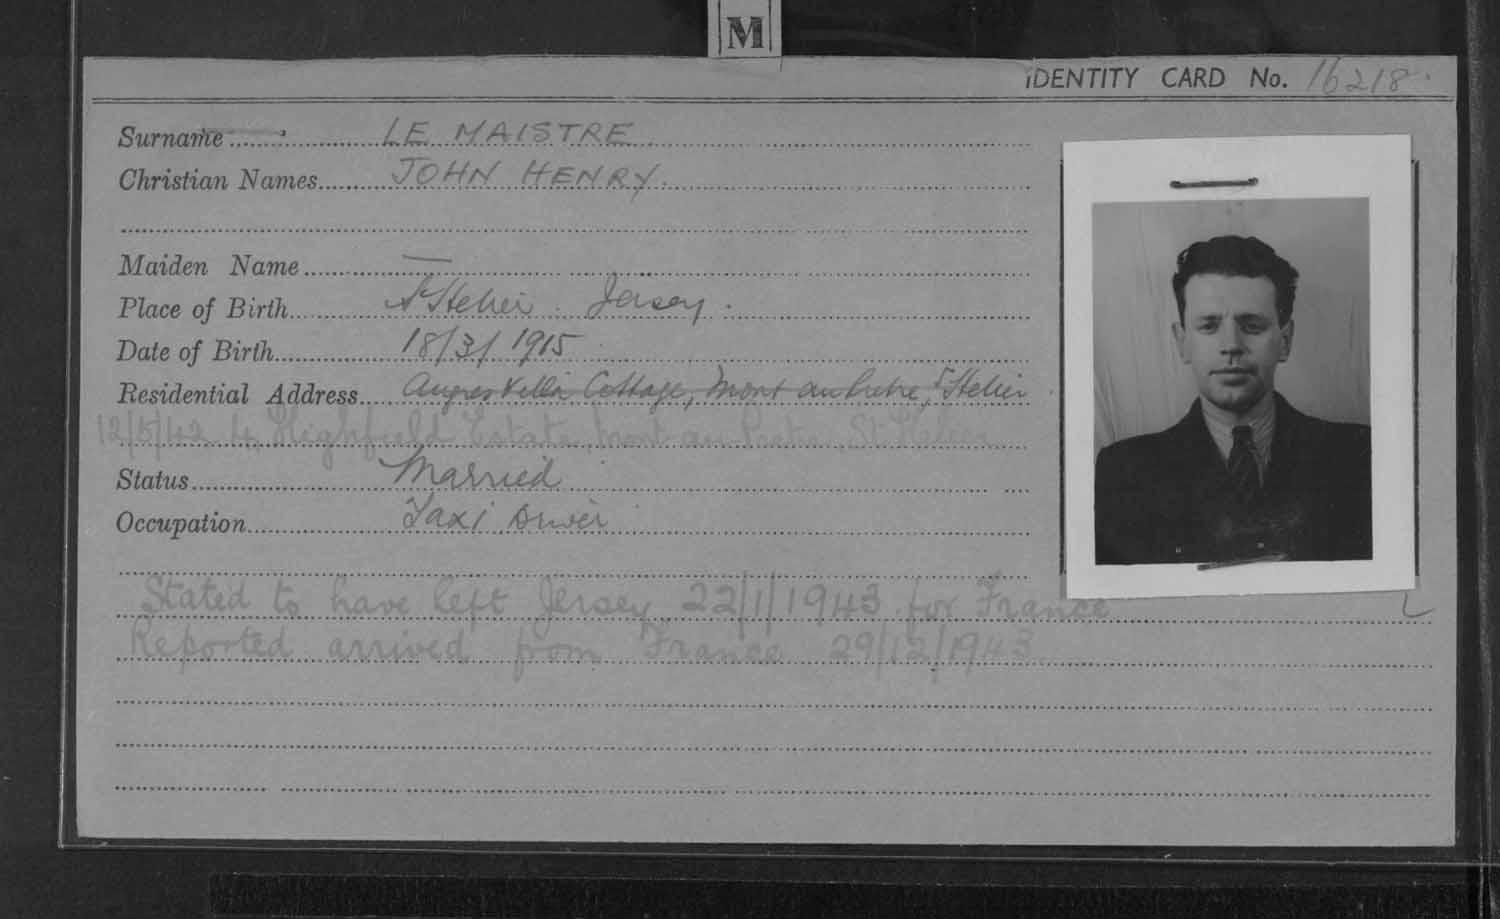 M
IDENTITY CARD No. 16218.
Surname LE MAISTRE
Christian Names JOHN HENRY
Maiden Name —
Place of Birth St Helier Jersey.
Date of Birth 18/3/1915
Residential Address Augres Villa Cottage, Mont au Pretre, St Helier
12/5/42 4, Highfield Estate, Mont au Pretre, St. Helier
Status Married
Occupation Taxi Driver
Stated to have left Jersey 22/1/1943 for France
Reported arrived from France 29/12/1943.